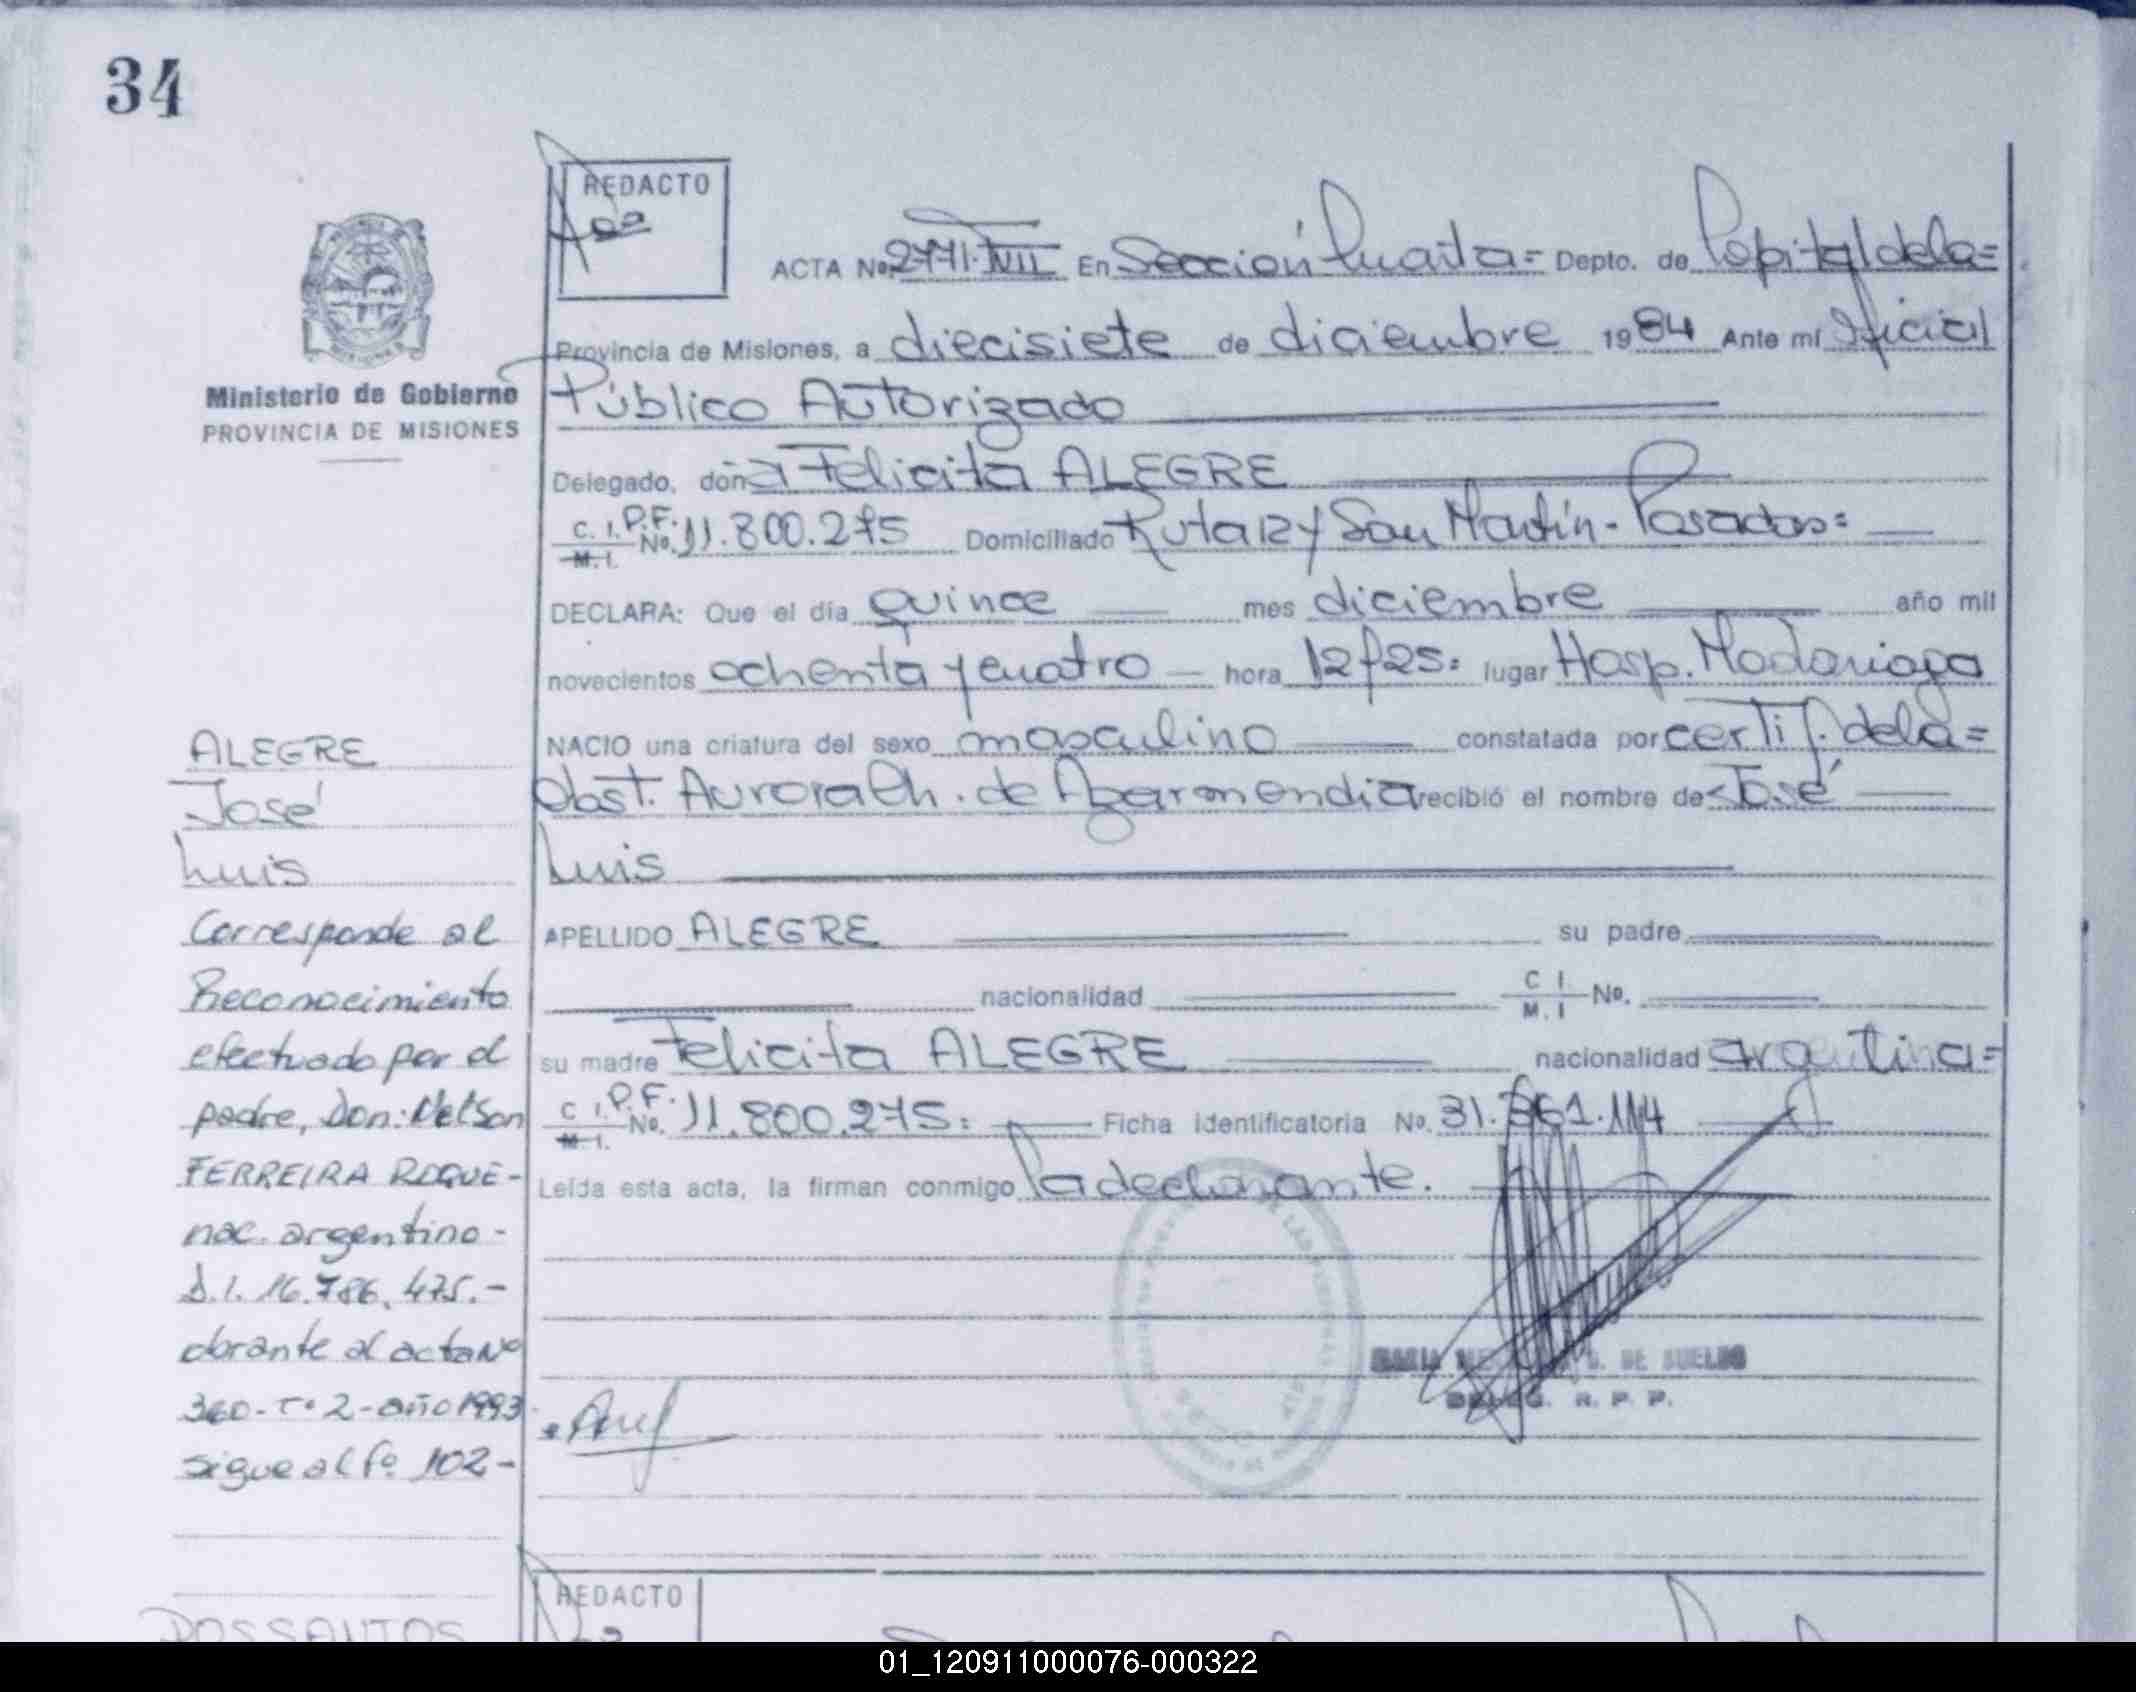 34
REDACTO
ACTA No. 2771. TVII En Sección Cuarta= Depto. de Capital de la=
Provincia de Misiones, a diecisiete de diciembre 1984 Ante mí Oficial
Ministerio de Gobierno
PROVINCIA DE MISIONES
Público Autorizado
Delegado, doña Felicita ALEGRE
C. I. P.F. M. I. No. 11.800.275 Domiciliado Ruta 12 y San Martín - Posadas=
DECLARA: Que el día quince mes diciembre año mil
novecientos ochenta y cuatro hora 12 y 25= lugar Hosp. Madariaga
NACIO una criatura del sexo masculino constatada por certif. de la=
Obst. Aurora Ch. de Agarmendia recibió el nombre de José
Luis
APELLIDO ALEGRE su padre
nacionalidad C I M. I No.
su madre Felicita ALEGRE nacionalidad argentina=
C I. P.F. M. I. No. 11.800.275= Ficha identificatoria No. 31.361.114
Leída esta acta, la firman conmigo la declarante.
DE SUELDO
DELEG. R. P. P.
ALEGRE
José
Luis
Corresponde al
Reconocimiento
efectuado por el
padre, Don: Nelson
FERREIRA ROQUE-
nac. argentino -
D.I. 16.786.475.-
obrante al acta Nº
360- Tº 2- año 1993
sigue al fº 102-
REDACTO
DOSSANTOS
01_120911000076-000322